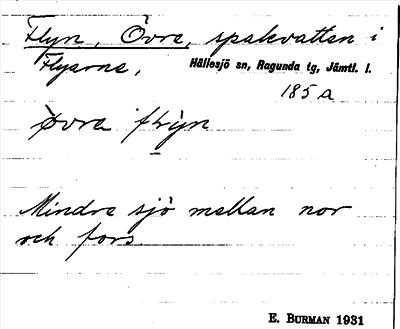 Flyn, Övre, spakvatten i
Flyarna, Hällesjö sn, Ragunda tg, Jämtl. l.
185 a
Mindre sjö mellan nor
och fors.
E. BURMAN 1931